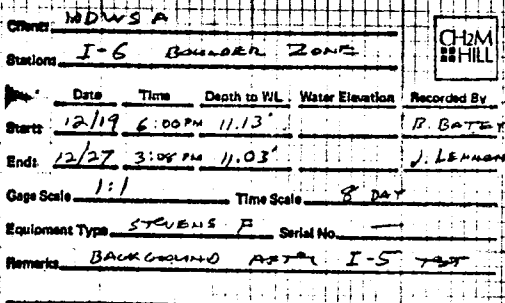 Client: MDWSA
CH2M HILL
Station: I-6 BOULDER ZONE
Date Time Depth to WL Water Elevation Recorded By
Start: 12/19 6:00 PM 11.13' B. BATEY
End: 12/27 3:08 PM 11.03' J. LENNON
Gage Scale 1:1 Time Scale 8 DAY
Equipment Type STEVENS F Serial No. —
Remarks BACKGROUND AFTER I-5 TEST